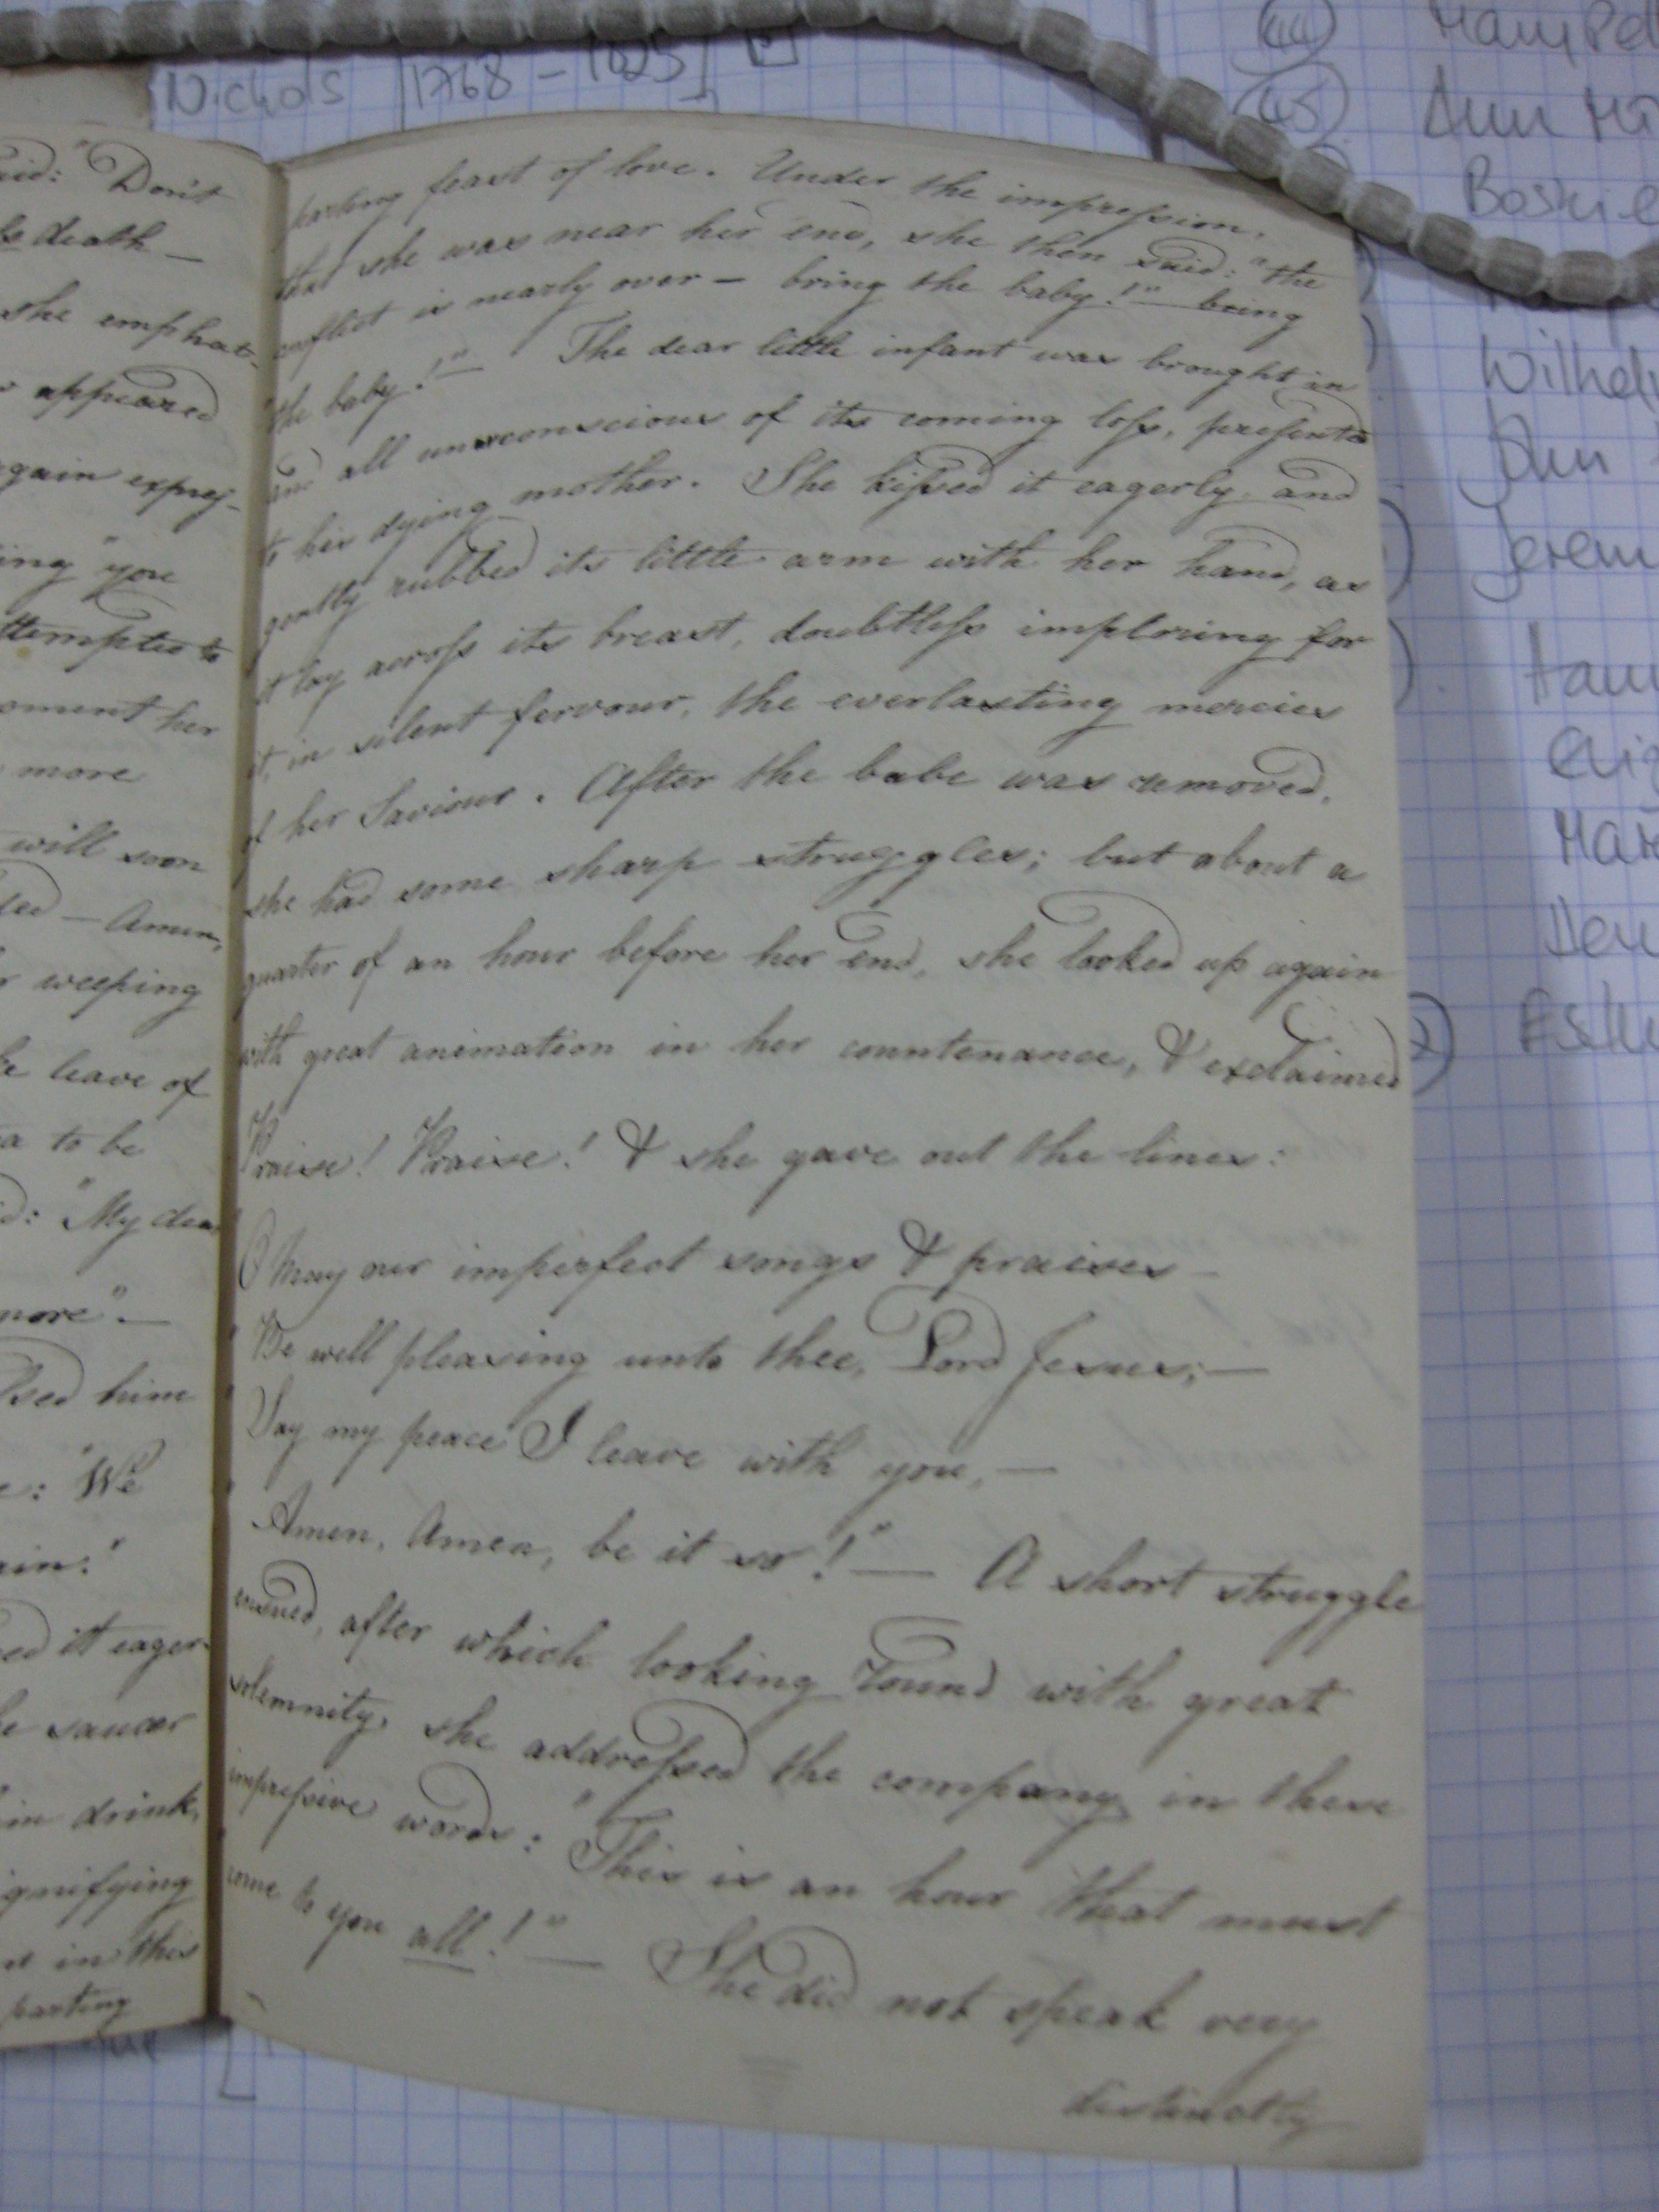 Nichols [1768 – 1825]
44 Mary Pel
45 Ann
Boskie
Wilhel
Jerem
Esth
said: "Don't
death —
she emphat-
appeared
again expres-
ing "you
attempted to
oment her
more
will soon
ed — Amen,
weeping
leave of
to be
d: "My dear
more". —
him
: "We
ain."
ed it eager-
saucer
drink,
ignifying
it in this
parting
parting feast of love. Under the impression,
that she was near her end, she then said: "the
conflict is nearly over — bring the baby!" — bring
"the baby!" — The dear little infant was brought in
and all unconscious of its coming loss, presented
to her dying mother. She kissed it eagerly and
gently rubbed its little arm with her hand, as
it lay across its breast, doubtless imploring for
it, in silent fervour, the everlasting mercies
of her Saviour. After the babe was removed,
she had some sharp struggles; but about a
quarter of an hour before her end, she looked up again
with great animation in her countenance, & exclaimed
Praise! Praise! & she gave out the lines:
O may our imperfect songs & praises —
"Be well pleasing unto thee, Lord Jesus; —
"Say my peace I leave with you, —
"Amen, Amen, be it so!" — A short struggle
ensued, after which looking round with great
solemnity, she addressed the company in these
impressive words: "This is an hour that must
"come to you all!" — She did not speak very
distinctly